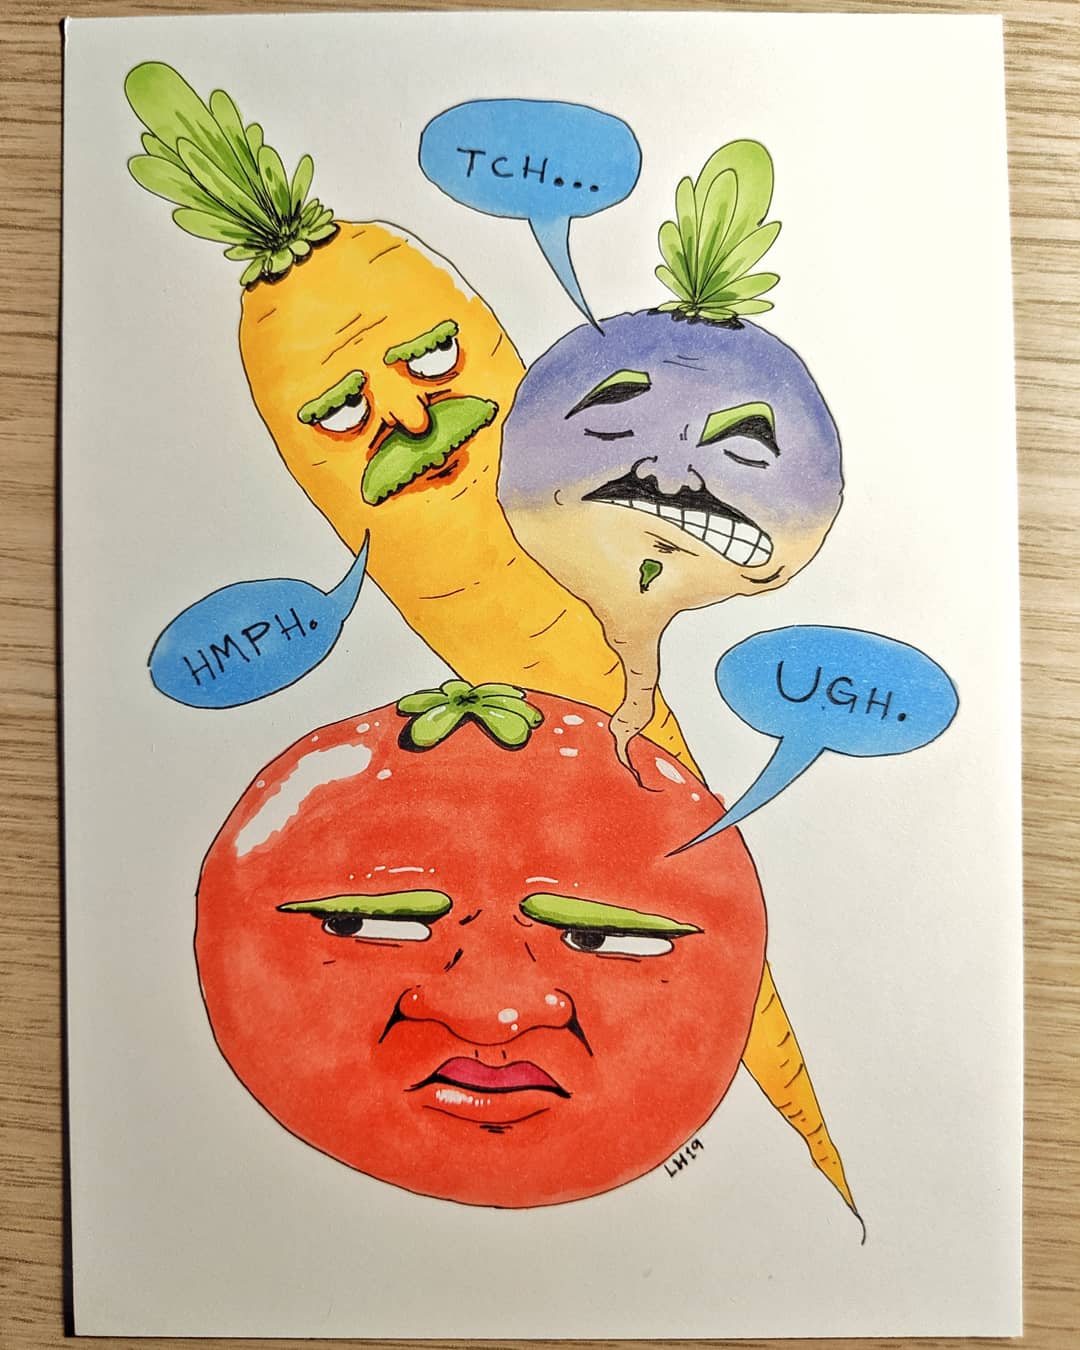 TCH...
HMPH.
UGH.
LH19